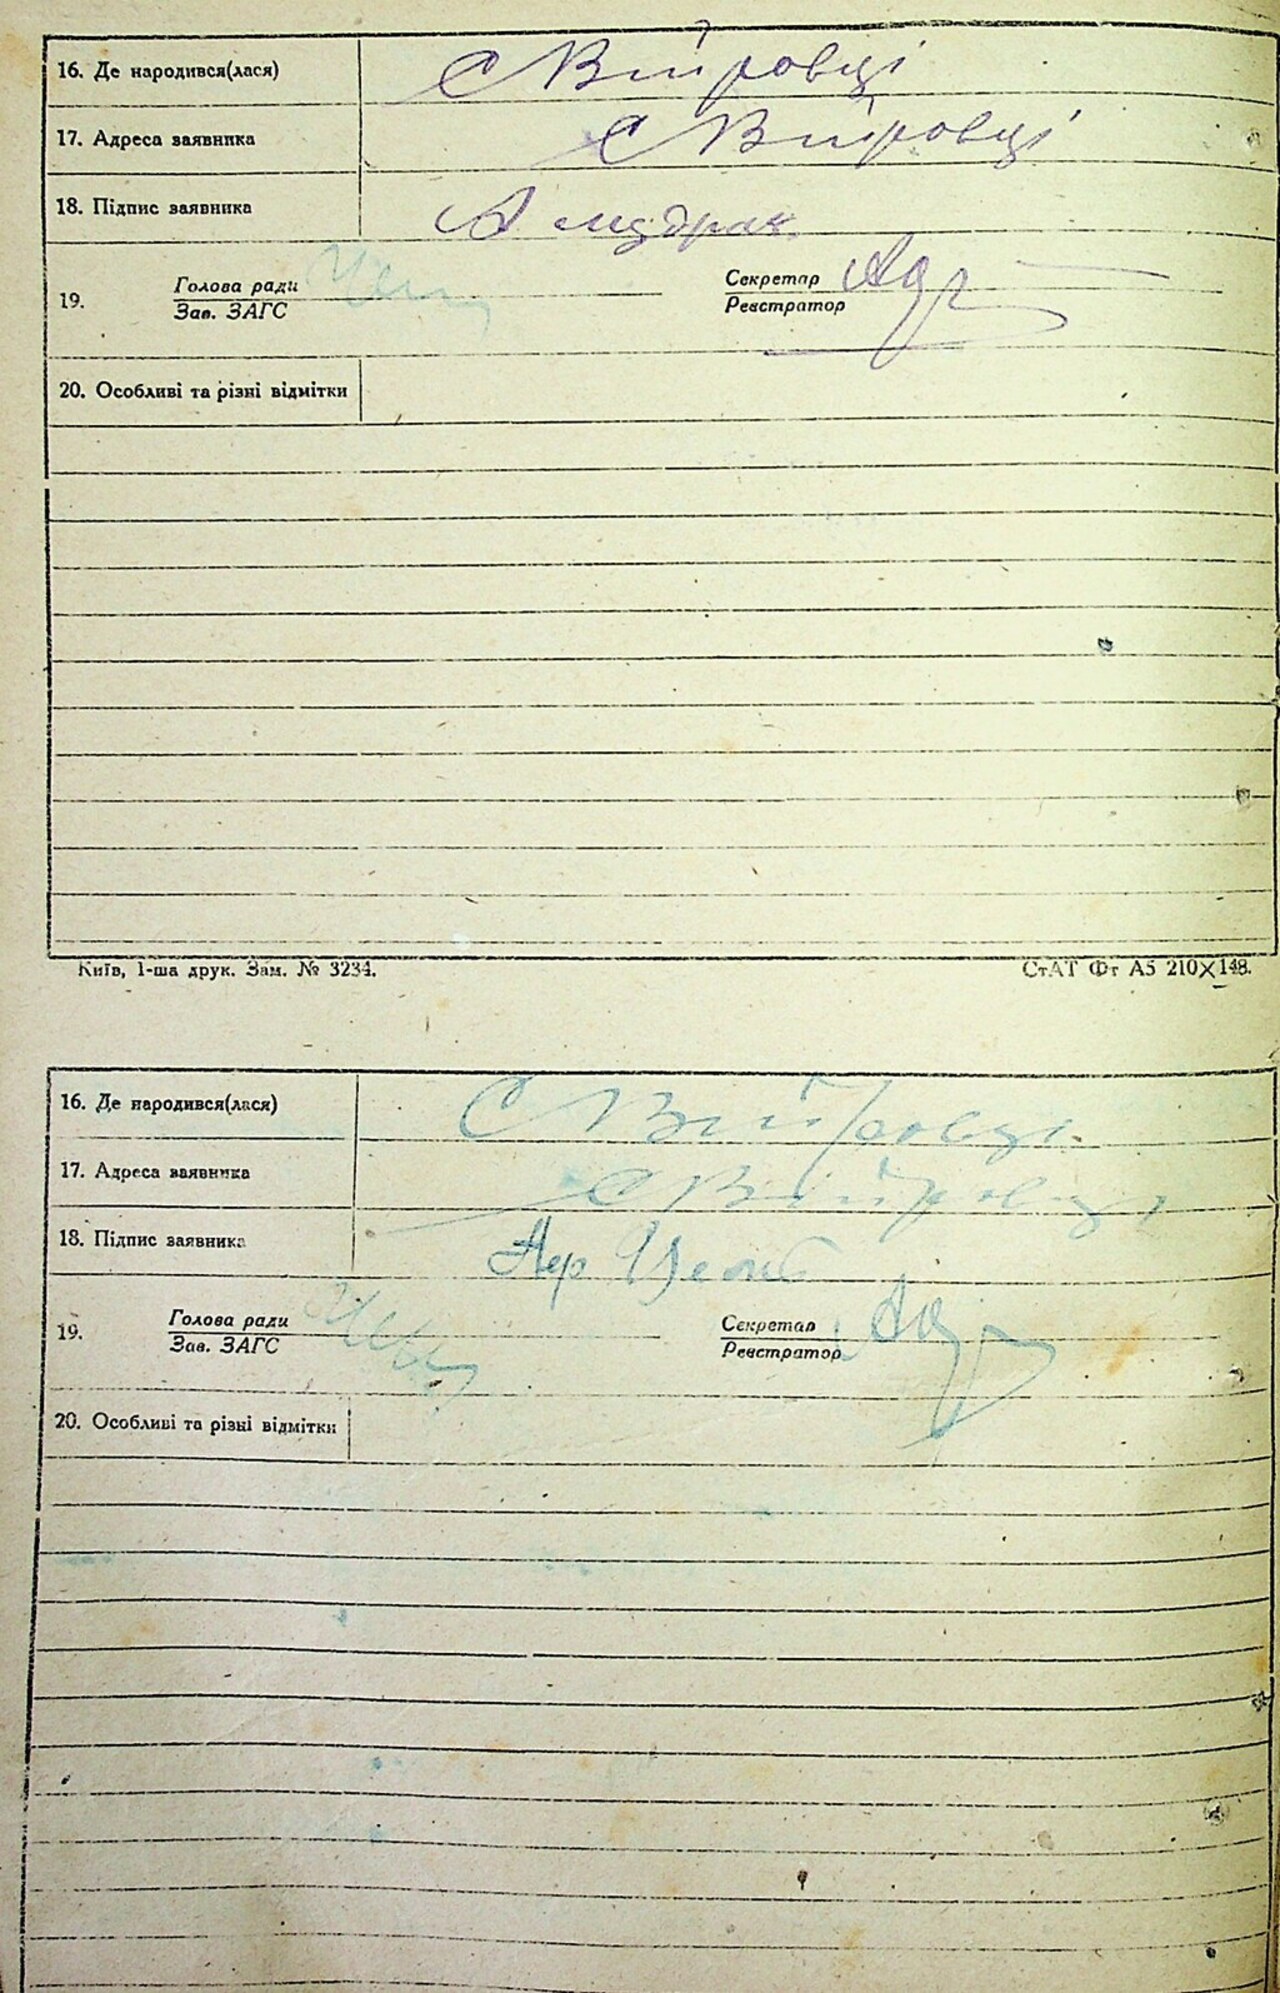 16. Де народився(лася) С Війровці
17. Адреса заявника С Війровці
18. Підпис заявника
19. Голова ради Секретар
Зав. ЗАГС Реєстратор
20. Особливі та різні відмітки
Київ, 1-ша друк. Зам. № 3234. СтАТ Фт А5 210×148.
16. Де народився(лася) С Війровці
17. Адреса заявника С Війровці
18. Підпис заявника
19. Голова ради Секретар
Зав. ЗАГС Реєстратор
20. Особливі та різні відмітки